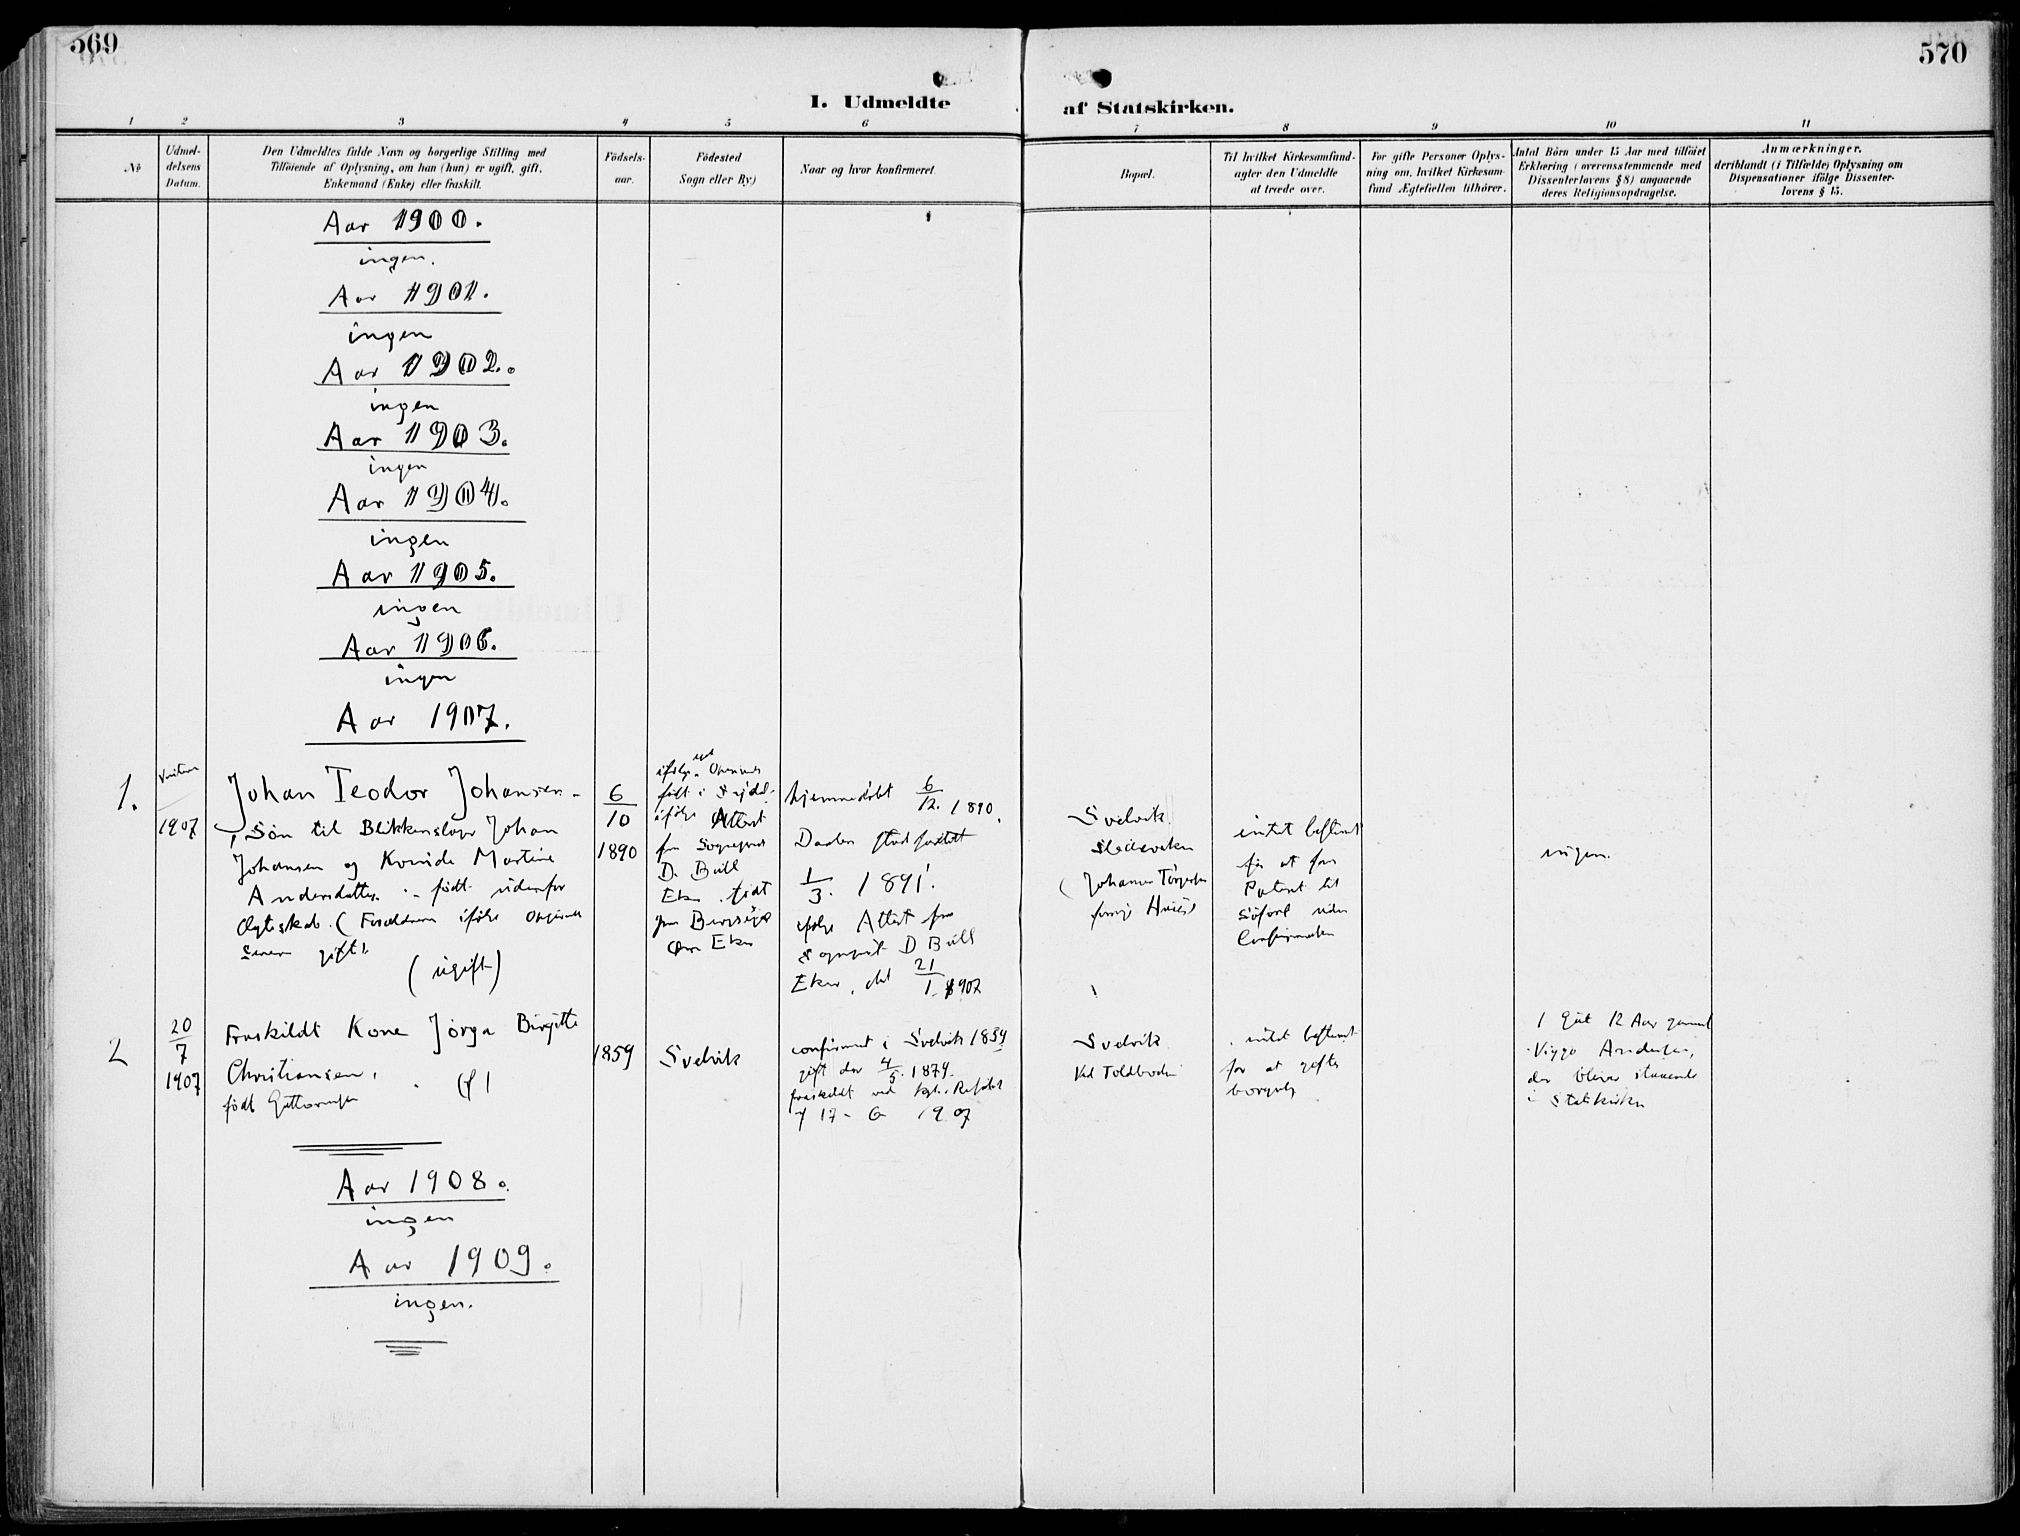 569
570
I. Udmeldte
af Statskirken.
1 2 3 4 5 6 7 8 9 10 11
№
Udmel-
delsens
Datum.
Den Udmeldtes fulde Navn og borgerlige Stilling med
Tilföiende af Oplysning, om han (hun) er ugift, gift,
Enkemand (Enke) eller fraskilt.
Födsels-
aar.
Födested
Sogn eller By)
Naar og hvor konfirmeret.
Bopæl.
Til hvilket Kirkesamfund-
agter den Udmeldte
at træde over.
For gifte Personer Oplys-
ning om, hvilket Kirkesam-
fund Ægtefællen tilhörer.
Antal Börn under 15 Aar med tilföiet
Erklæring (overensstemmende med
Dissenterlovens § 8) angaaende
deres Religionsopdragelse.
Anmærkninger,
deriblandt (i Tilfælde) Oplysning om
Dispensationer ifölge Dissenter-
lovens § 15.
Aar 1900.
ingen.
Aar 1901.
ingen
Aar 1902.
ingen
Aar 1903.
ingen
Aar 1904.
ingen
Aar 1905.
ingen
Aar 1906.
ingen
Aar 1907.
1.
1907
Johan Teodor Johansen
Sön til Blikkenslager Johan
Johansen og Kvinde Martine
Andersdatter födt udenfor
Ægteskab. (Forældrene ifölge
senere gift).
(ugift)
6/10
1890
ifölge
födt i
ifölge Attest
fra Sogneprest
D. Bull
Eker födt
Eker
hjemmedöbt 6/12. 1890.
Daaben stadfæstet
1/3. 1891.
ifölge Attest fra
Sogneprest D Bull
Eker, dat 21/1 1907
Svelvik
(Johannes
intet bestemt
for at faa
Patent til
Söfart uden
Confirmation
ingen.
2
20/7
1907
Fraskildt Kone Jörga Birgitte
Christiansen,
födt Guttormsen
1859
Svelvik
confirmert i Svelvik
gift der 4/5. 1879.
fraskildt ved kgl. Resolut
af 17 - 6 1907
Svelvik
Ved Toldboden
intet bestemt
for at gifte
borgerlig
1 Gut 12 Aar gammel
Viggo Andersen,
der bliver staaende
i Statskirken
Aar 1908.
ingen
Aar 1909.
ingen.